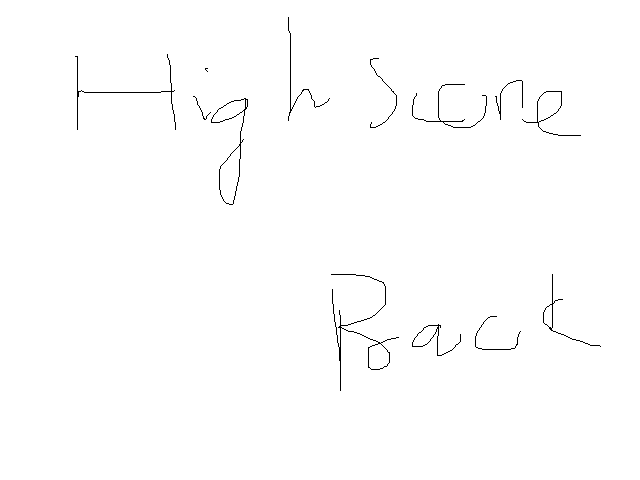 High Score
Back